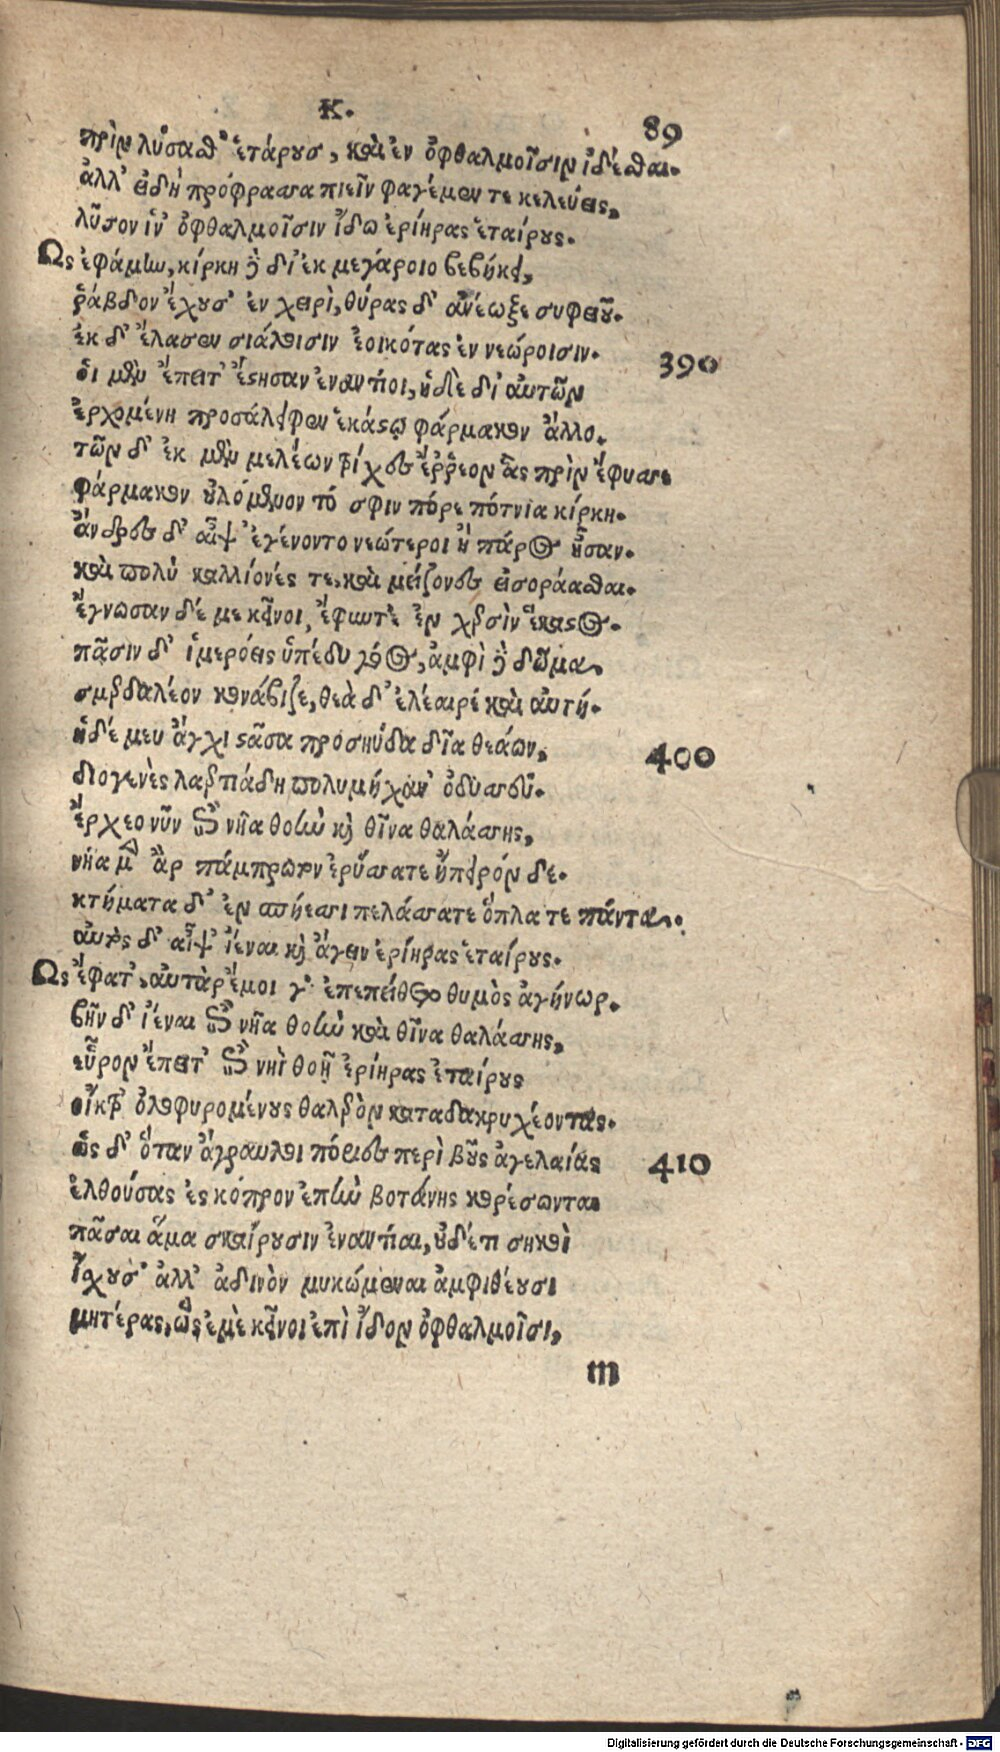 Κ.
89
πρὶν λύσασθ' ἑτάρους, καὶ ἐν ὀφθαλμοῖσιν ἰδέσθαι.
ἀλλ' εἰ δὴ πρόφρασσα πιεῖν φαγέμεν τε κελεύεις,
λῦσον ἵν' ὀφθαλμοῖσιν ἴδω ἐρίηρας ἑταίρους.
Ως ἐφάμην, κίρκη δὲ δι' ἐκ μεγάροιο βεβήκει,
ῥάβδον ἔχουσ' ἐν χειρὶ, θύρας δ' ἀνέωξε συφειοῦ.
ἐκ δ' ἔλασεν σιάλοισιν ἐοικότας ἐν νεώροισιν.
390
οἱ μὲν ἔπειτ' ἔστησαν ἐναντίοι, ἡ δὲ δι' αὐτῶν
ἐρχομένη προσάλειφεν ἑκάστῳ φάρμακον ἄλλο.
τῶν δ' ἐκ μὲν μελέων τρίχες ἔρῥεον ἃς πρὶν ἔφυσε
φάρμακον οὐλόμενον τό σφιν πόρε πότνια κίρκη.
ἄνδρες δ' αἶψ' ἐγένοντο νεώτεροι ἢ πάρος ἦσαν.
καὶ πολὺ καλλίονές τε, καὶ μείζονες εἰσοράασθαι.
ἔγνωσαν δέ με κεῖνοι, ἔφωτε ἐν χερσὶν ἕκαστος.
πᾶσιν δ' ἱμερόεις ὑπέδυ γόος, ἀμφὶ δὲ δῶμα,
σμερδαλέον κονάβιζε, θεὰ δ' ἐλέαιρε καὶ αὐτή.
ἡ δέ μευ ἄγχι στᾶσα προσηύδα δῖα θεάων,
400
διογενὲς λαερτιάδη πολυμήχαν' ὀδυσσεῦ.
ἔρχεο νῦν ἐπὶ νῆα θοὴν καὶ θῖνα θαλάσσης,
νῆα μὲν ἂρ πάμπρωτον ἐρύσσατε ἤπειρόν δε.
κτήματα δ' ἐν σπήεσσι πελάσσατε ὅπλα τε πάντα.
αὐτὸς δ' αἶψ' ἰέναι καὶ ἄγειν ἐρίηρας ἑταίρους.
Ως ἔφατ', αὐτὰρ ἔμοι γ' ἐπεπείθετο θυμὸς ἀγήνωρ.
βῆν δ' ἰέναι ἐπὶ νῆα θοὴν καὶ θῖνα θαλάσσης,
εὗρον ἔπειτ' ἐπὶ νηῒ θοῇ ἐρίηρας ἑταίρους
οἴκτρ' ὀλοφυρομένους θαλερὸν καταδακρυχέοντας.
ὡς δ' ὅταν ἄγραυλοι πόριες περὶ βοῦς ἀγελαίας
410
ἐλθούσας ἐς κόπρον ἐπὴν βοτάνης κορέσωνται
πᾶσαι ἅμα σκαίρουσιν ἐναντίαι, οὐδέτι σηκοὶ
ἴχουσ' ἀλλ' ἀδινὸν μυκώμεναι ἀμφιθέουσι
μητέρας, ὣς ἐμὲ κεῖνοι ἐπὶ ἴδον ὀφθαλμοῖσι,
m
Digitalisierung gefördert durch die Deutsche Forschungsgemeinschaft - DFG